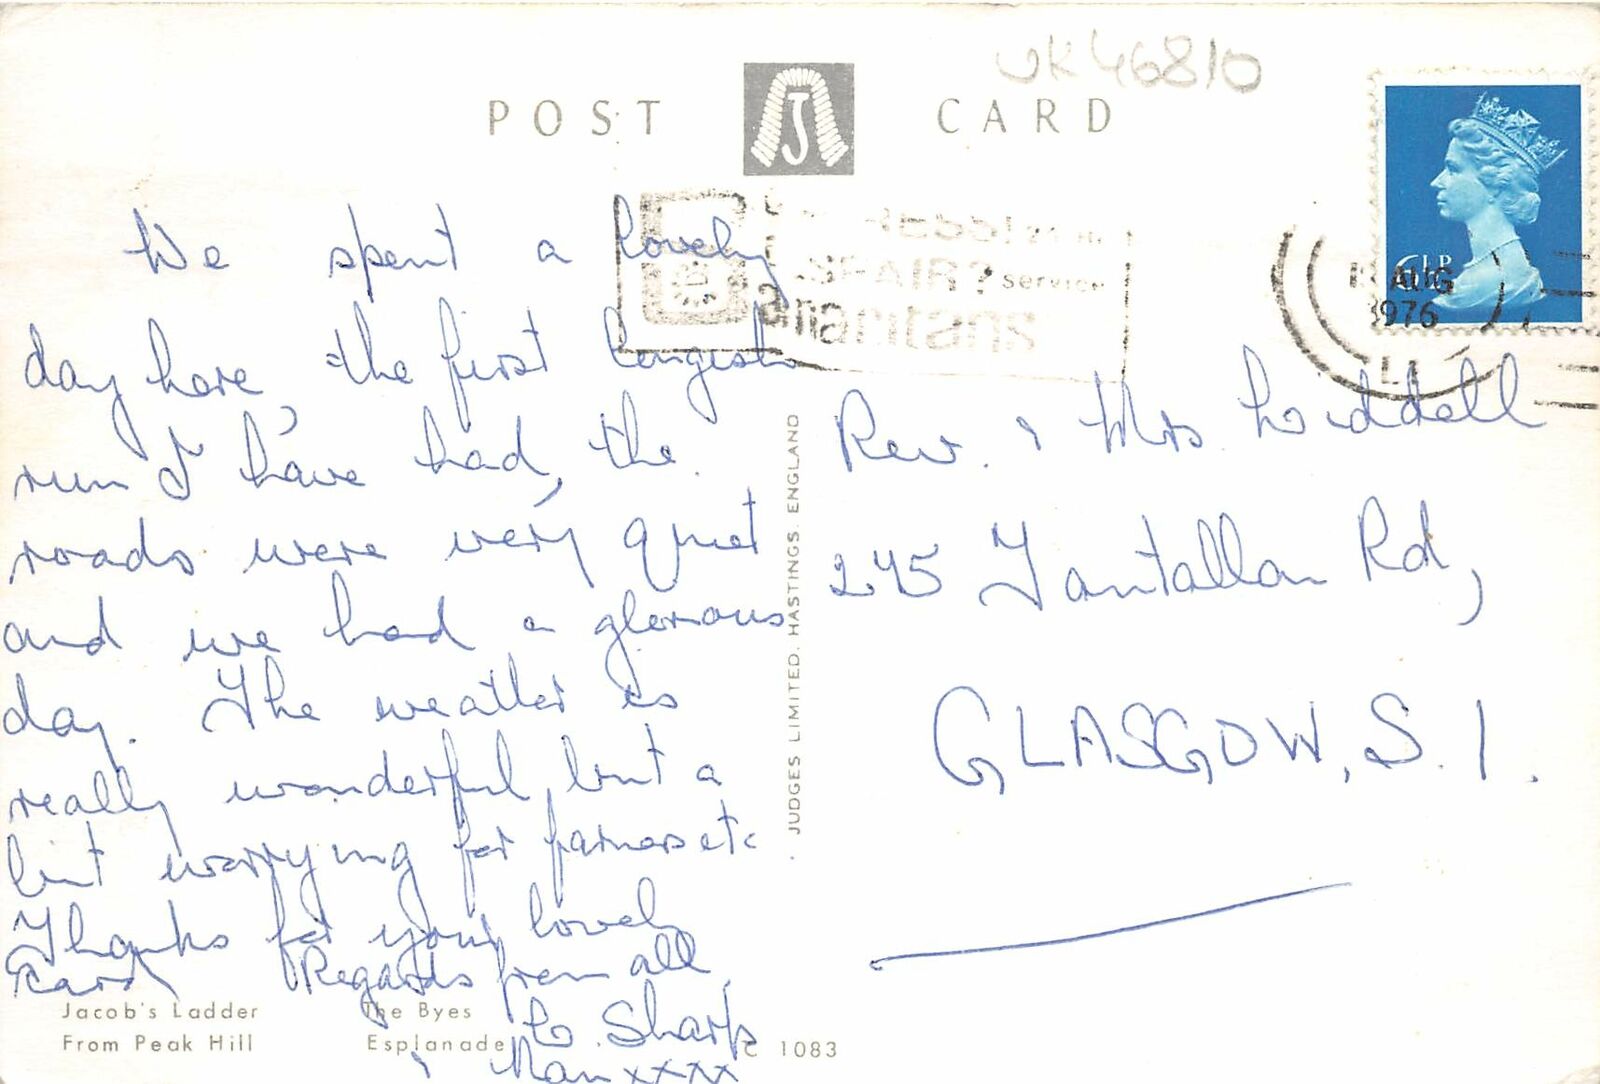 UK46810
POST CARD
J
6½P
AUG
1976
DESPAIR? service
Samaritans
We spent a lovely
day here, the first longish
run I have had, the
roads were very quiet
and we had a glorious
day. The weather is
really wonderful, but a
bit worrying for farmers etc.
Thanks for your lovely
card Regards from all,
C. Sharp
& Nan xxxx
Rev. & Mrs Liddell
245 Tantallon Rd,
GLASGOW, S.1.
JUDGES LIMITED, HASTINGS, ENGLAND
Jacob's Ladder The Byes
From Peak Hill Esplanade
C 1083